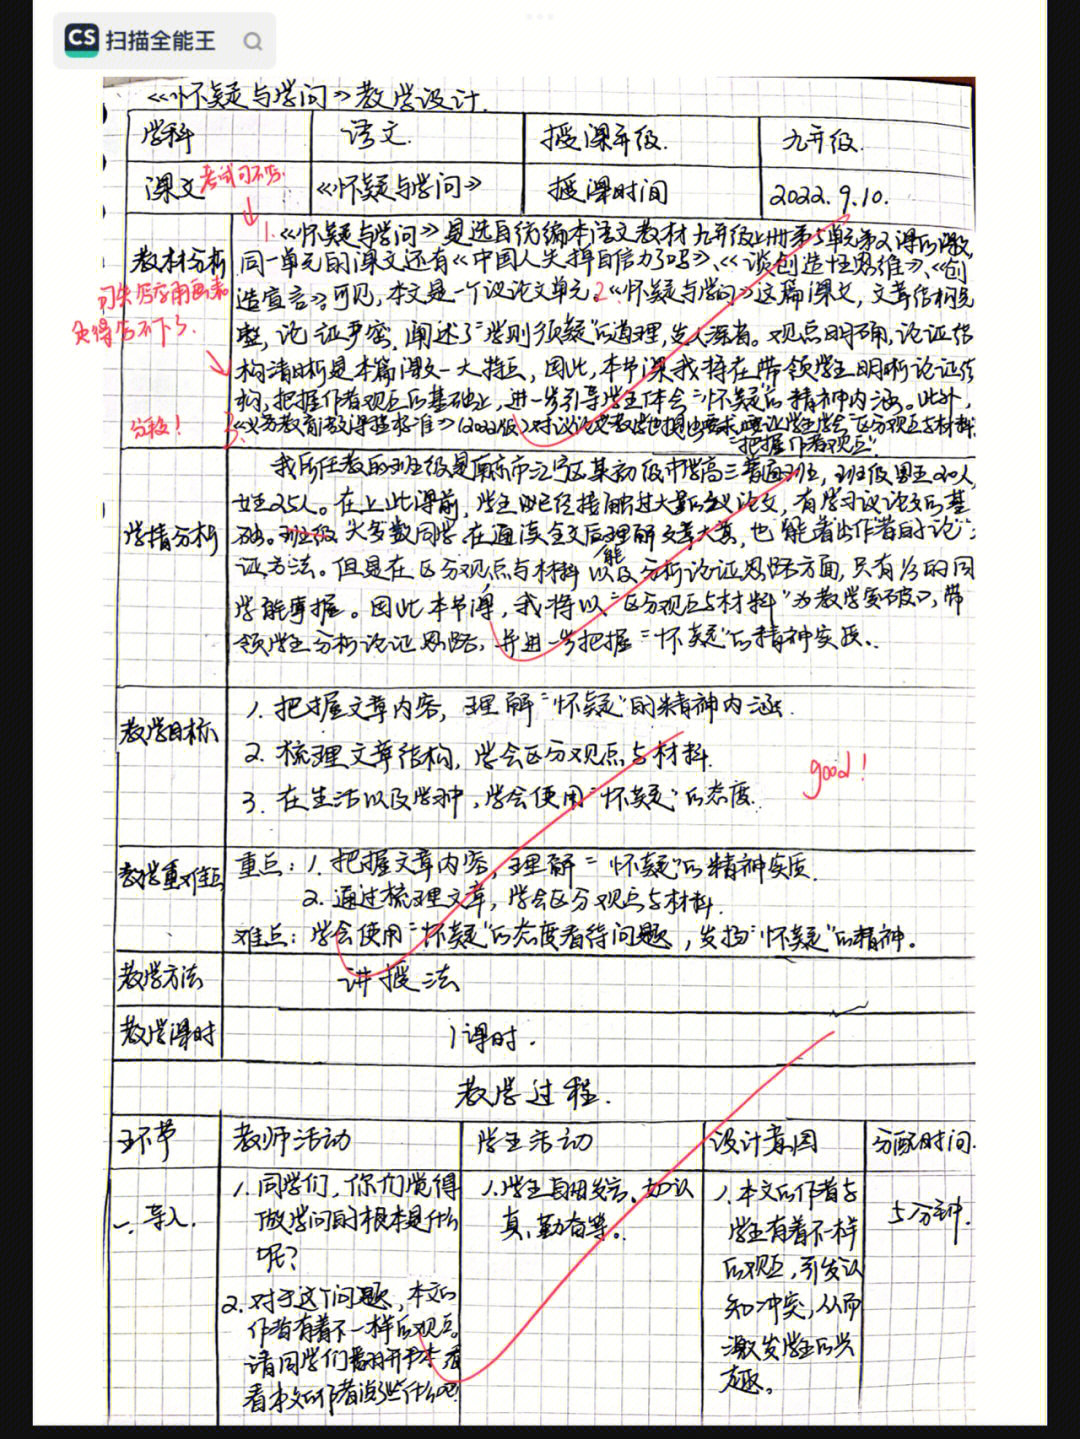 CS 扫描全能王
《怀疑与学问》教学设计.
学科 语文. 授课年级. 九年级.
课文 考试可不写. 《怀疑与学问》 授课时间 2022.9.10.
教材分析
1.《怀疑与学问》是选自统编本语文教材九年级上册第5单元第2课的课文,
同一单元的课文还有《中国人失掉自信力了吗》、《谈创造性思维》、《创
造宣言》,可见,本文是一个议论文单元。2.《怀疑与学问》这篇课文,文章结构完
整,论证严密,阐述了“学则须疑”的道理,发人深省。观点明确,论证结
构清晰是本篇课文一大特点,因此,本节课我将在带领学生明晰论证结
构,把握作者观点的基础上,进一步引导学生体会“怀疑”的精神内涵。此外,
3.《义务教育教学课程标准》(2022版)对议论文教学也提出要求,让学生学会“区分观点与材料
“把握作者观点”
分段!
学情分析
我所任教的班级是南京市江宁区某初级中学高三普通班,班级男生20人,
女生25人。在上此课前,学生已经接触过大量的议论文,有学习议论文的基
础。班级大多数同学在通读全文后能理解文章大意,也能看出作者的论
证方法。但是在区分观点与材料以及分析论证思路方面,只有⅓的同
学能掌握。因此本节课,我将以“区分观点与材料”为教学突破口,带
领学生分析论证思路,并进一步把握“怀疑”的精神实质.
教学目标
1. 把握文章内容,理解“怀疑”的精神内涵.
2. 梳理文章结构,学会区分观点与材料.
3. 在生活以及学习中,学会使用“怀疑”的态度.
good!
教学重难点
重点:1. 把握文章内容,理解“怀疑”的精神实质.
2. 通过梳理文章,学会区分观点与材料.
难点:学会使用“怀疑”的态度看待问题,发扬“怀疑”的精神。
教学方法 讲授法
教学课时 1课时.
教学过程.
环节 教师活动 学生活动 设计意图 分配时间.
一.导入.
1. 同学们,你们觉得
做学问的根本是什么
呢?
2. 对于这个问题,本文的
作者有着不一样的观点。
请同学们翻开书本,看
看本文的作者说了些什么吧
1. 学生自由发言。如认
真、勤奋等。
1. 本文的作者与
学生有着不一样
的观点,引发认
知冲突,从而
激发学生的兴
趣。
5分钟.